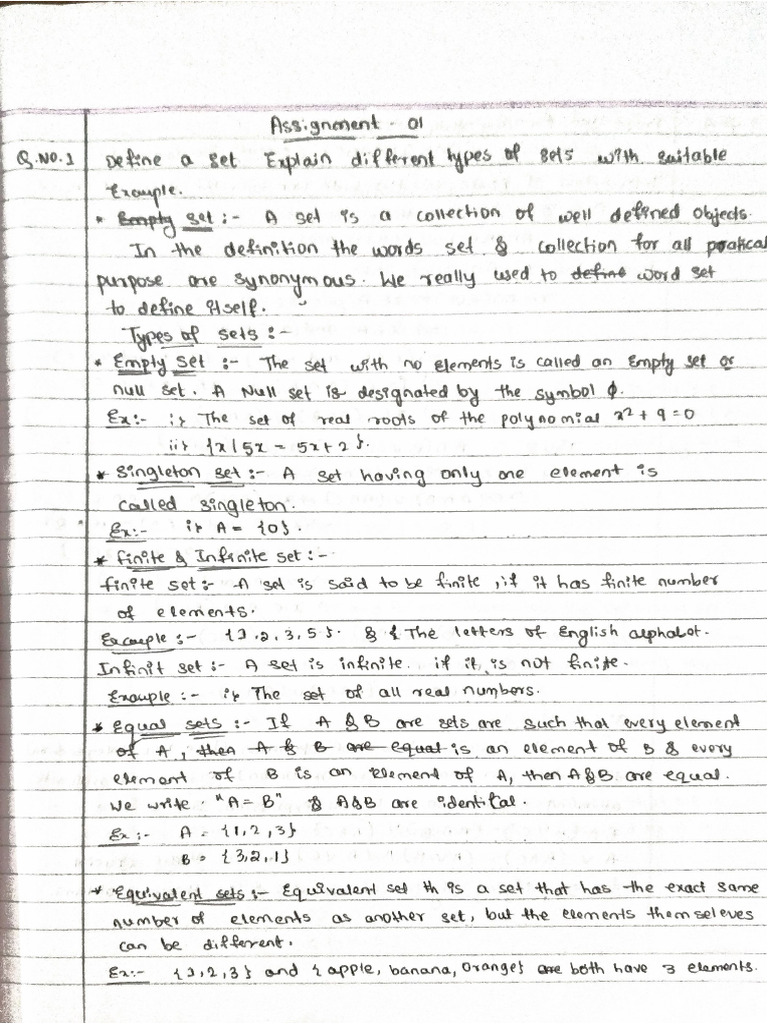 Assignment - 01
Q.NO.1 Define a set Explain different types of sets with suitable
Example.
* Empty set :- A set is a collection of well defined objects.
In the definition the words set & collection for all pratical
purpose are synonymous. We really used to define word set
to define itself.
Types of sets :-
* Empty set :- The set with no elements is called an Empty set or
null set. A Null set is designated by the symbol ϕ.
Ex:- i) The set of real roots of the polynomial x² + 9 = 0
ii) {x | 5x = 5x + 2}.
* Singleton set :- A set having only one element is
called singleton.
Ex:- i) A = {0}.
* finite & Infinite set :-
finite set :- A set is said to be finite, if it has finite number
of elements.
Example :- {1,2,3,5}. & { The letters of English alphabot.
Infinit set :- A set is infinite. if it is not finite.
Example :- i) The set of all real numbers.
* Equal sets :- If A & B are sets are such that every element
of A, then A & B are equal is an element of B & every
element of B is an element of A, then A&B are equal.
We write "A = B" & A&B are identifal.
Ex:- A = {1,2,3}
B = {3,2,1}
* Equivalent sets :- Equivalent set th is a set that has the exact same
number of elements as another set, but the elements themseleves
can be different.
Ex:- {1,2,3} and {apple, banana, orange} are both have 3 elements.